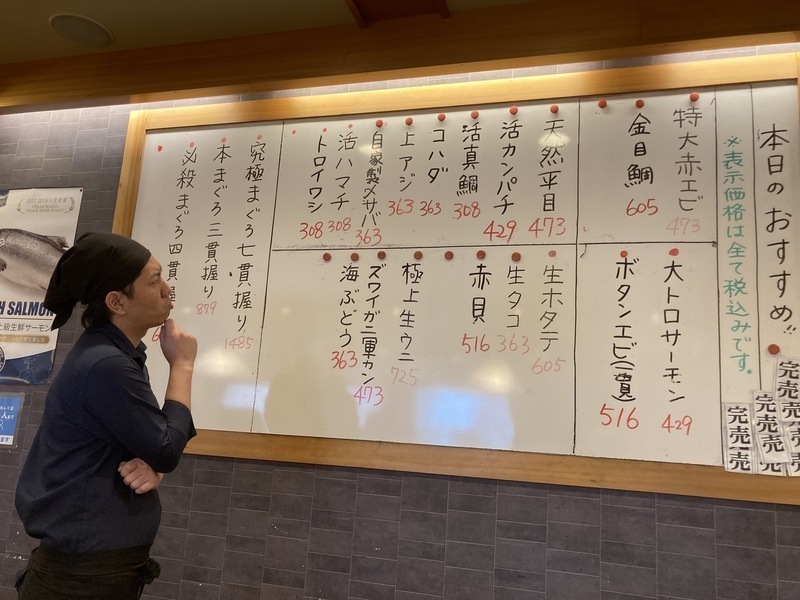 本日のおすすめ!!
※表示価格は全て税込みです。
特大赤エビ
473
金目鯛
605
大トロサーモン
429
ボタンエビ(一貫)
516
天然平目
473
活カンパチ
429
活真鯛
308
コハダ
363
上アジ
363
自家製〆サバ
363
活ハマチ
308
トロイワシ
308
生ホタテ
605
生タコ
363
赤貝
516
極上生ウニ
725
ズワイガニ軍カン
473
海ぶどう
363
究極まぐろ七貫握り
1485
本まぐろ三貫握り
879
必殺まぐろ四貫握
完売
完売
完売
完売
完売
完売
完売
H SALMON
上級生鮮サーモン